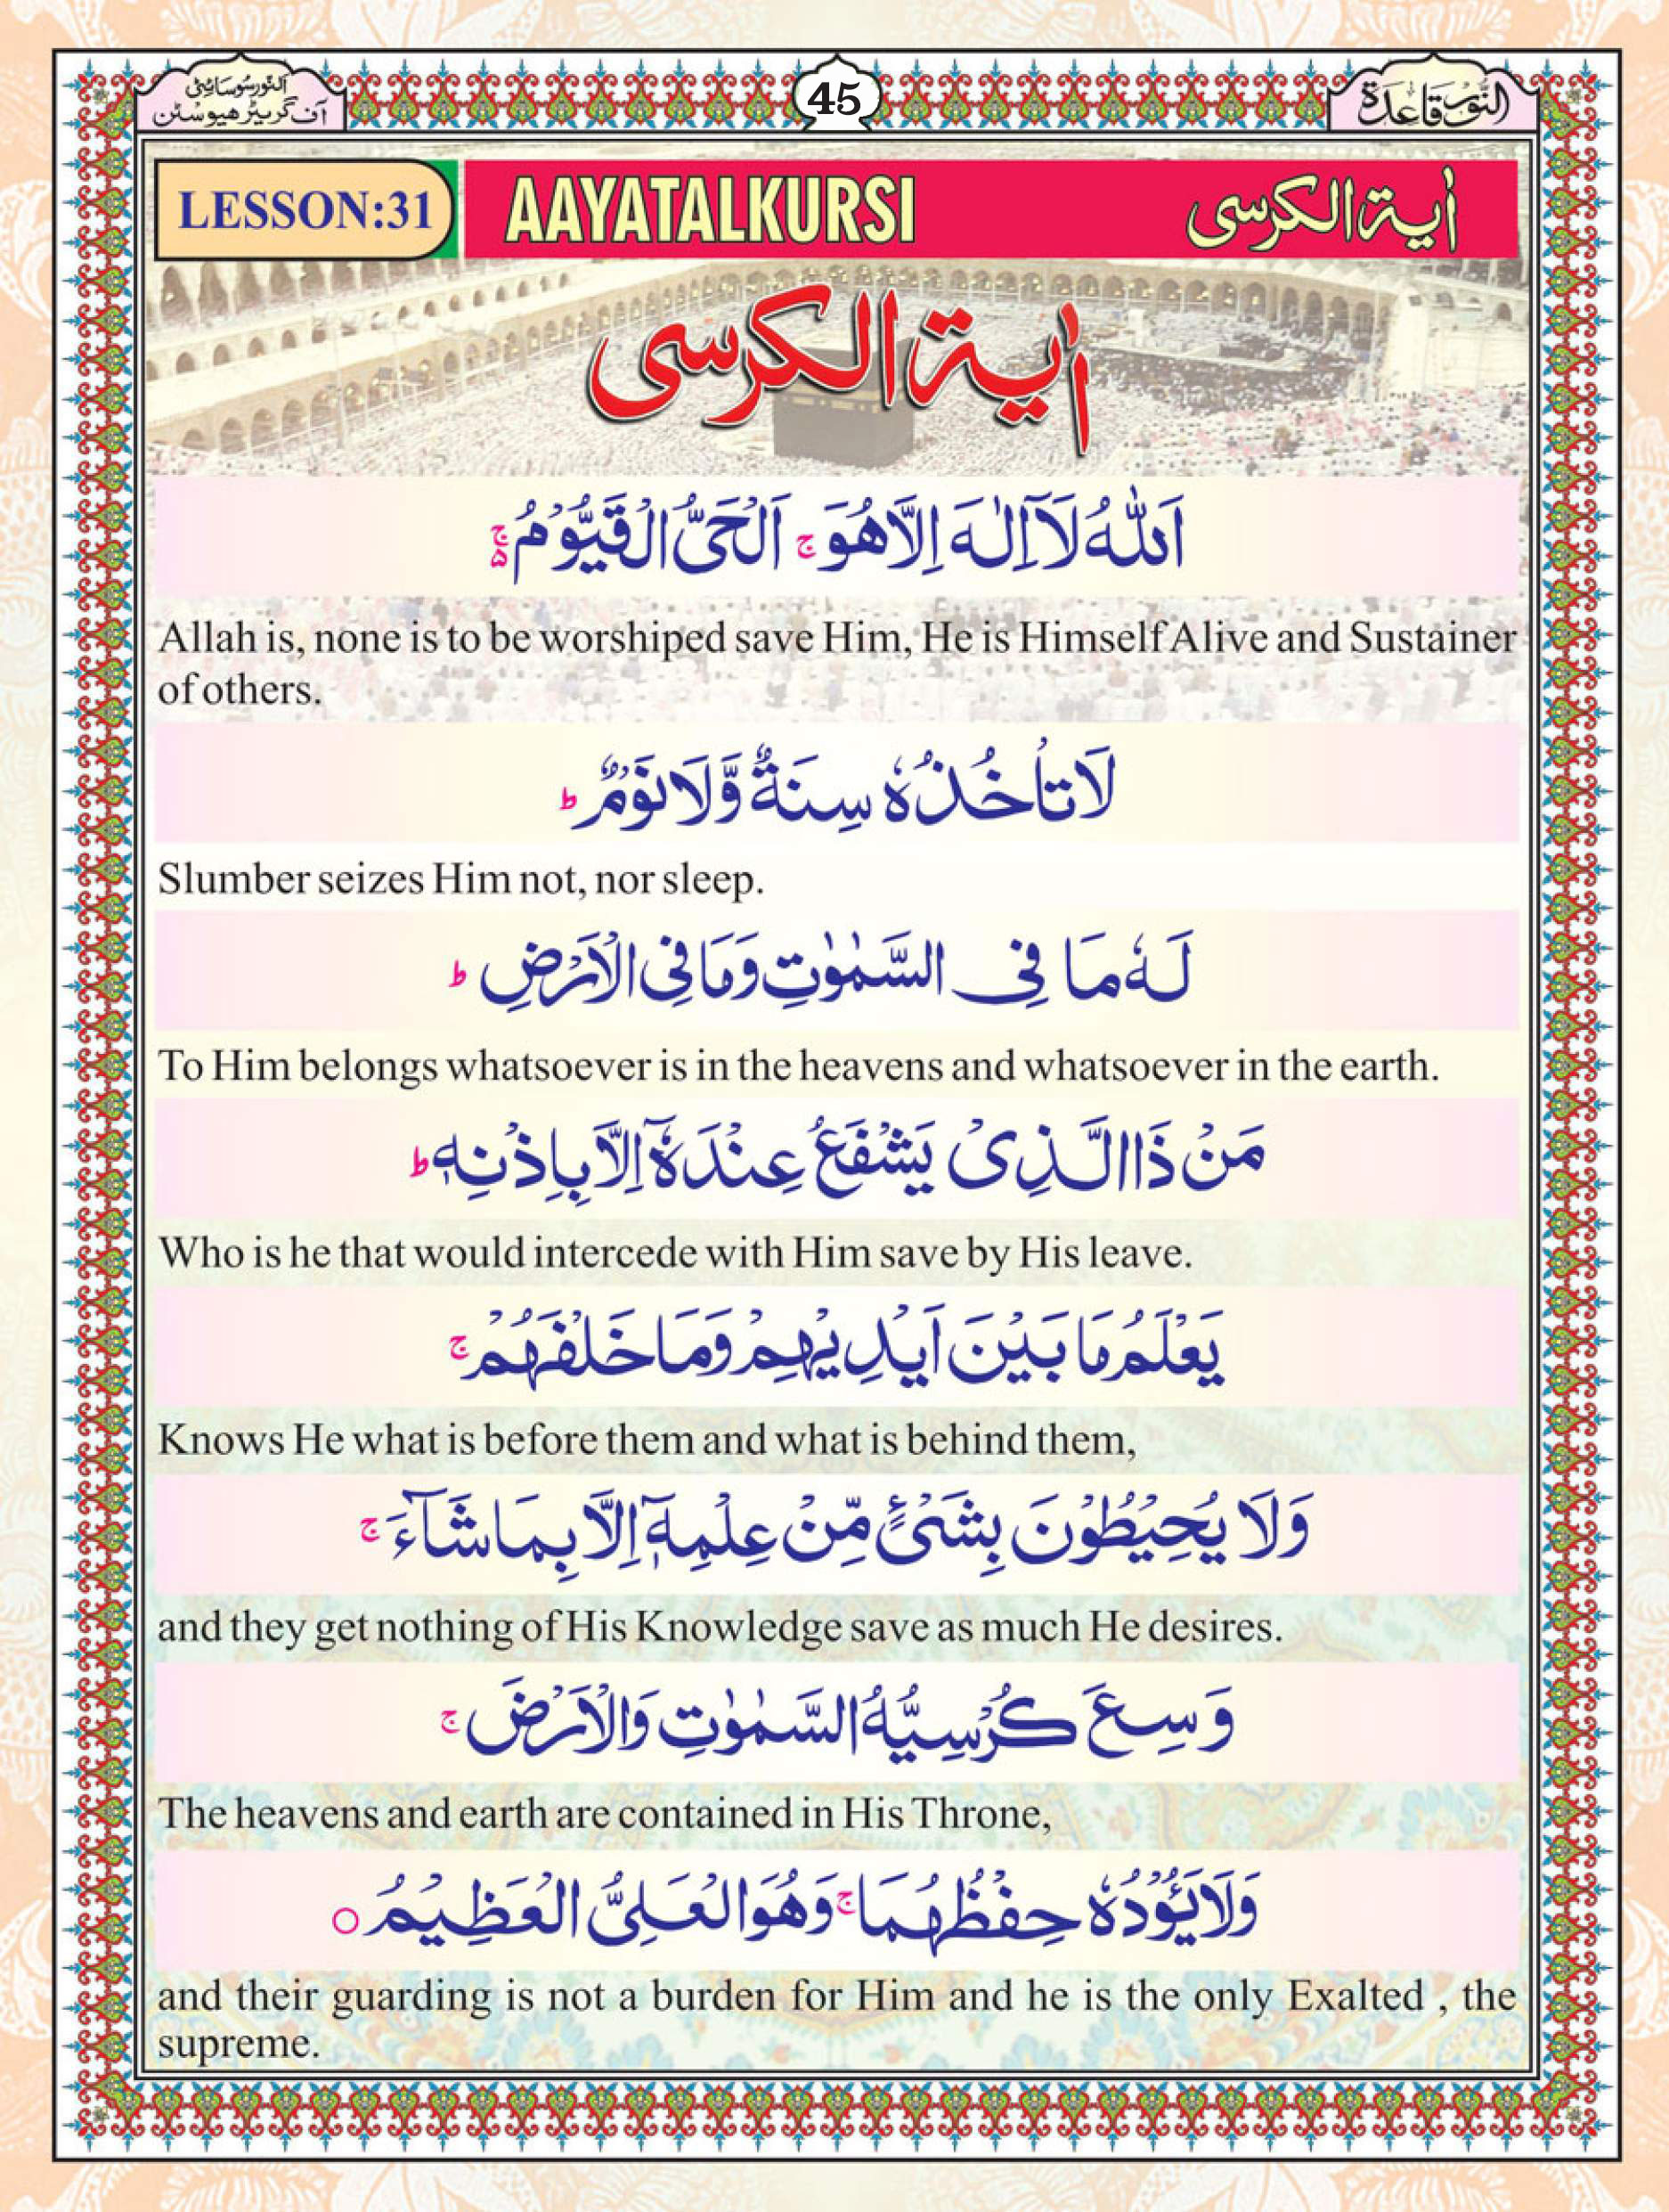 النور قاعدة
45
النور سوسائٹی
آف گریٹر هیوسٹن
LESSON:31
AAYATALKURSI
اٰية الكرسى
اٰية الكرسى
اَللّٰهُ لَآ اِلٰهَ اِلَّا هُوَ ۚ اَلْحَىُّ الْقَيُّوْمُ ۚ۵
Allah is, none is to be worshiped save Him, He is Himself Alive and Sustainer
of others.
لَا تَاْخُذُهٗ سِنَةٌ وَّلَا نَوْمٌ ؕ
Slumber seizes Him not, nor sleep.
لَهٗ مَا فِى السَّمٰوٰتِ وَمَا فِى الْاَرْضِ ؕ
To Him belongs whatsoever is in the heavens and whatsoever in the earth.
مَنْ ذَا الَّذِىْ يَشْفَعُ عِنْدَهٗٓ اِلَّا بِاِذْنِهٖ ؕ
Who is he that would intercede with Him save by His leave.
يَعْلَمُ مَا بَيْنَ اَيْدِيْهِمْ وَمَا خَلْفَهُمْ ۚ
Knows He what is before them and what is behind them,
وَلَا يُحِيْطُوْنَ بِشَىْءٍ مِّنْ عِلْمِهٖٓ اِلَّا بِمَا شَآءَ ۚ
and they get nothing of His Knowledge save as much He desires.
وَسِعَ كُرْسِيُّهُ السَّمٰوٰتِ وَالْاَرْضَ ۚ
The heavens and earth are contained in His Throne,
وَلَا يَـُٔوْدُهٗ حِفْظُهُمَا ۚ وَهُوَ الْعَلِىُّ الْعَظِيْمُ ○
and their guarding is not a burden for Him and he is the only Exalted , the
supreme.